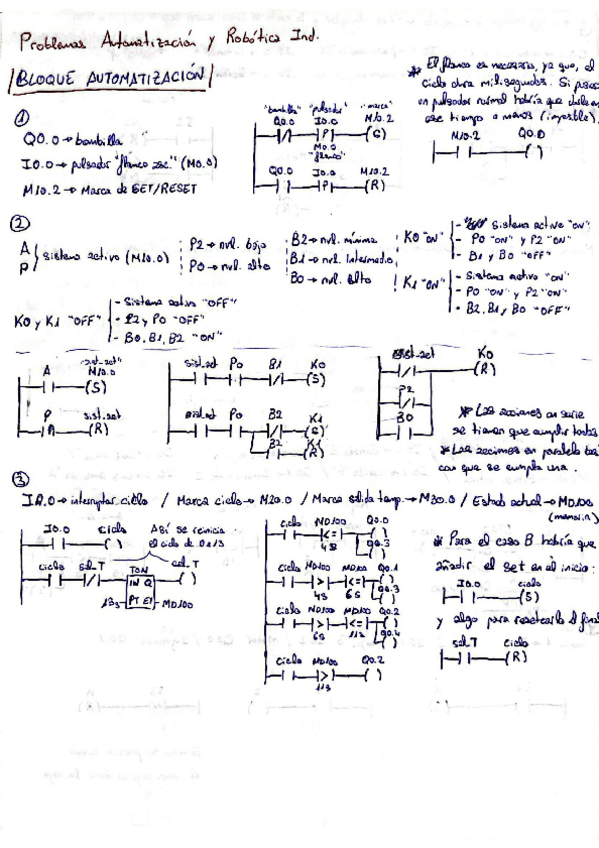 Problemas Automatización y Robótica Ind.
BLOQUE AUTOMATIZACIÓN
* El flanco es necesario, ya que, el
ciclo dura milisegundos. Si
un pulsador normal habría que
ese tiempo o menos (imposible).
①
Q0.0 → bombilla
I0.0 → pulsador "flanco asc." (M0.0)
M10.2 → Marca de SET/RESET
"bombilla" "pulsador" "marca"
Q0.0 I0.0 M10.2
P
M0.0
"flanco"
Q0.0 I0.0 M10.2
P (R)
M10.2 Q0.0
②
A
P } sistema activo (M10.0)
P2 → nvl. bajo
P0 → nvl. alto
B2 → nvl. mínimo
B1 → nvl. intermedio
B0 → nvl. alto
K0 "ON"
- Sistema activo "ON"
- P0 "ON" y P2 "ON"
- B1 y B0 "OFF"
K1 "ON"
- Sistema activo "ON"
- P0 "ON" y P2 "ON"
- B2, B1, B0 "OFF"
K0 y K1 "OFF"
- Sistema activo "OFF"
- P2 y P0 "OFF"
- B0, B1, B2 "ON"
"sist_act"
A M10.0
(S)
P sist.act
(R)
sist_act P0 B1 K0
(S)
sist.act P0 B2 K1
B2 K1
(R)
sist_act K0
(R)
P2
B0
* Las acciones en serie
se tienen que cumplir todas
* Las acciones en paralelo
con que se cumpla una.
③
I0.0 → interruptor ciclo / Marca ciclo → M20.0 / Marca salida temp. → M30.0 / Estado actual → MD100
I0.0 ciclo
Así se reinicia
el ciclo de 0 a 13
ciclo sal.T TON sal.T
IN Q
13s PT ET MD100
ciclo MD100 Q0.0
<= Q0.3
4s
ciclo MD100 MD100 Q0.1
> <= Q0.3
4s 6s
ciclo MD100 MD100 Q0.2
> <= Q0.4
6s 11s
ciclo MD100 Q0.2
>
11s
* Para el caso B habría que
añadir el set en el inicio:
I0.0 ciclo
(S)
y algo para resetearlo al
sal.T ciclo
(R)